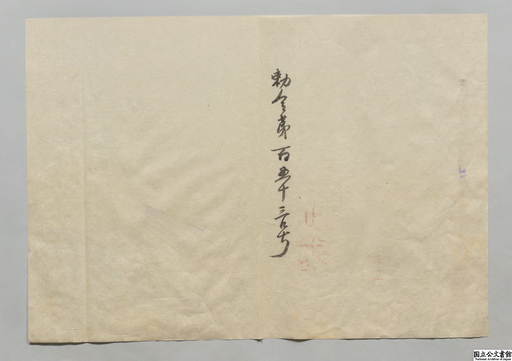 勅令第百五十三号
国立公文書館
National Archives of Japan